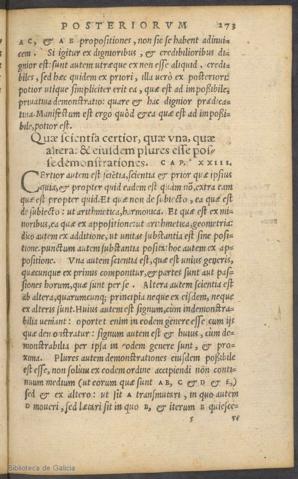 POSTERIORVM 273
AC, & AE propositiones, non sic se habent adinui
cem. Si igitur ex dignioribus, & credibilioribus di
gnior est: sunt autem utræque ex non esse aliquid, credi
biles, sed hæc quidem ex priori, illa uerò ex posteriori:
potior utique simpliciter erit ea, quæ est ad impoßibile,
priuatiua demonstratio: quare & hac dignior prædica-
tiua. Manifestum est ergo quòd & ea quæ est ad impoßi-
bile, potior est.
Quæ scientia certior, quæ vna, quæ
altera: & eiusdem plures esse pos-
se demonstrationes. CAP. XXIII.
Certior autem est sciẽtia, scientia & prior quæ ipsius
quia, & propter quid eadem est
quæ est propter quid. Et quæ non de subiecto, ea quæ est
de subiecto: ut arithmetica, harmonica. Et quæ est ex mi
noribus, ea quæ ex appositione: ut arithmetica, geometrica:
dico autem ex additione, ut unitas substantia est sine posi-
tione: punctum autem substantia posita: hoc autem ex ap-
positione. Vna autem scientia est, quæ est unius generis,
quæcunque ex primis componitur, & partes sunt aut paß-
siones horum, quæ sunt per se. Altera autem scientia est
ab altera, quarumcunq; principia neque ex eisdem, neque
ex alteris sunt. Huius autem est signum, cùm indemonstra-
bilia ueniant: oportet enim in eodem genere esse, cum ijs
quæ demonstrantur: signum autem est & huius, cùm de-
monstrabilia per ipsa in eodem genere sunt, & pro-
xima. Plures autem demonstrationes eiusdem poßibile
est esse, non solùm ex eodem ordine accipiendi non conti-
nuum medium (ut eorum quæ sunt AB, C & D & F,)
sed & ex altero: ut sit A transmutari, in quo autem
D moueri, sed lætari sit in quo B, & iterum B quiesce-
s
Biblioteca de Galicia